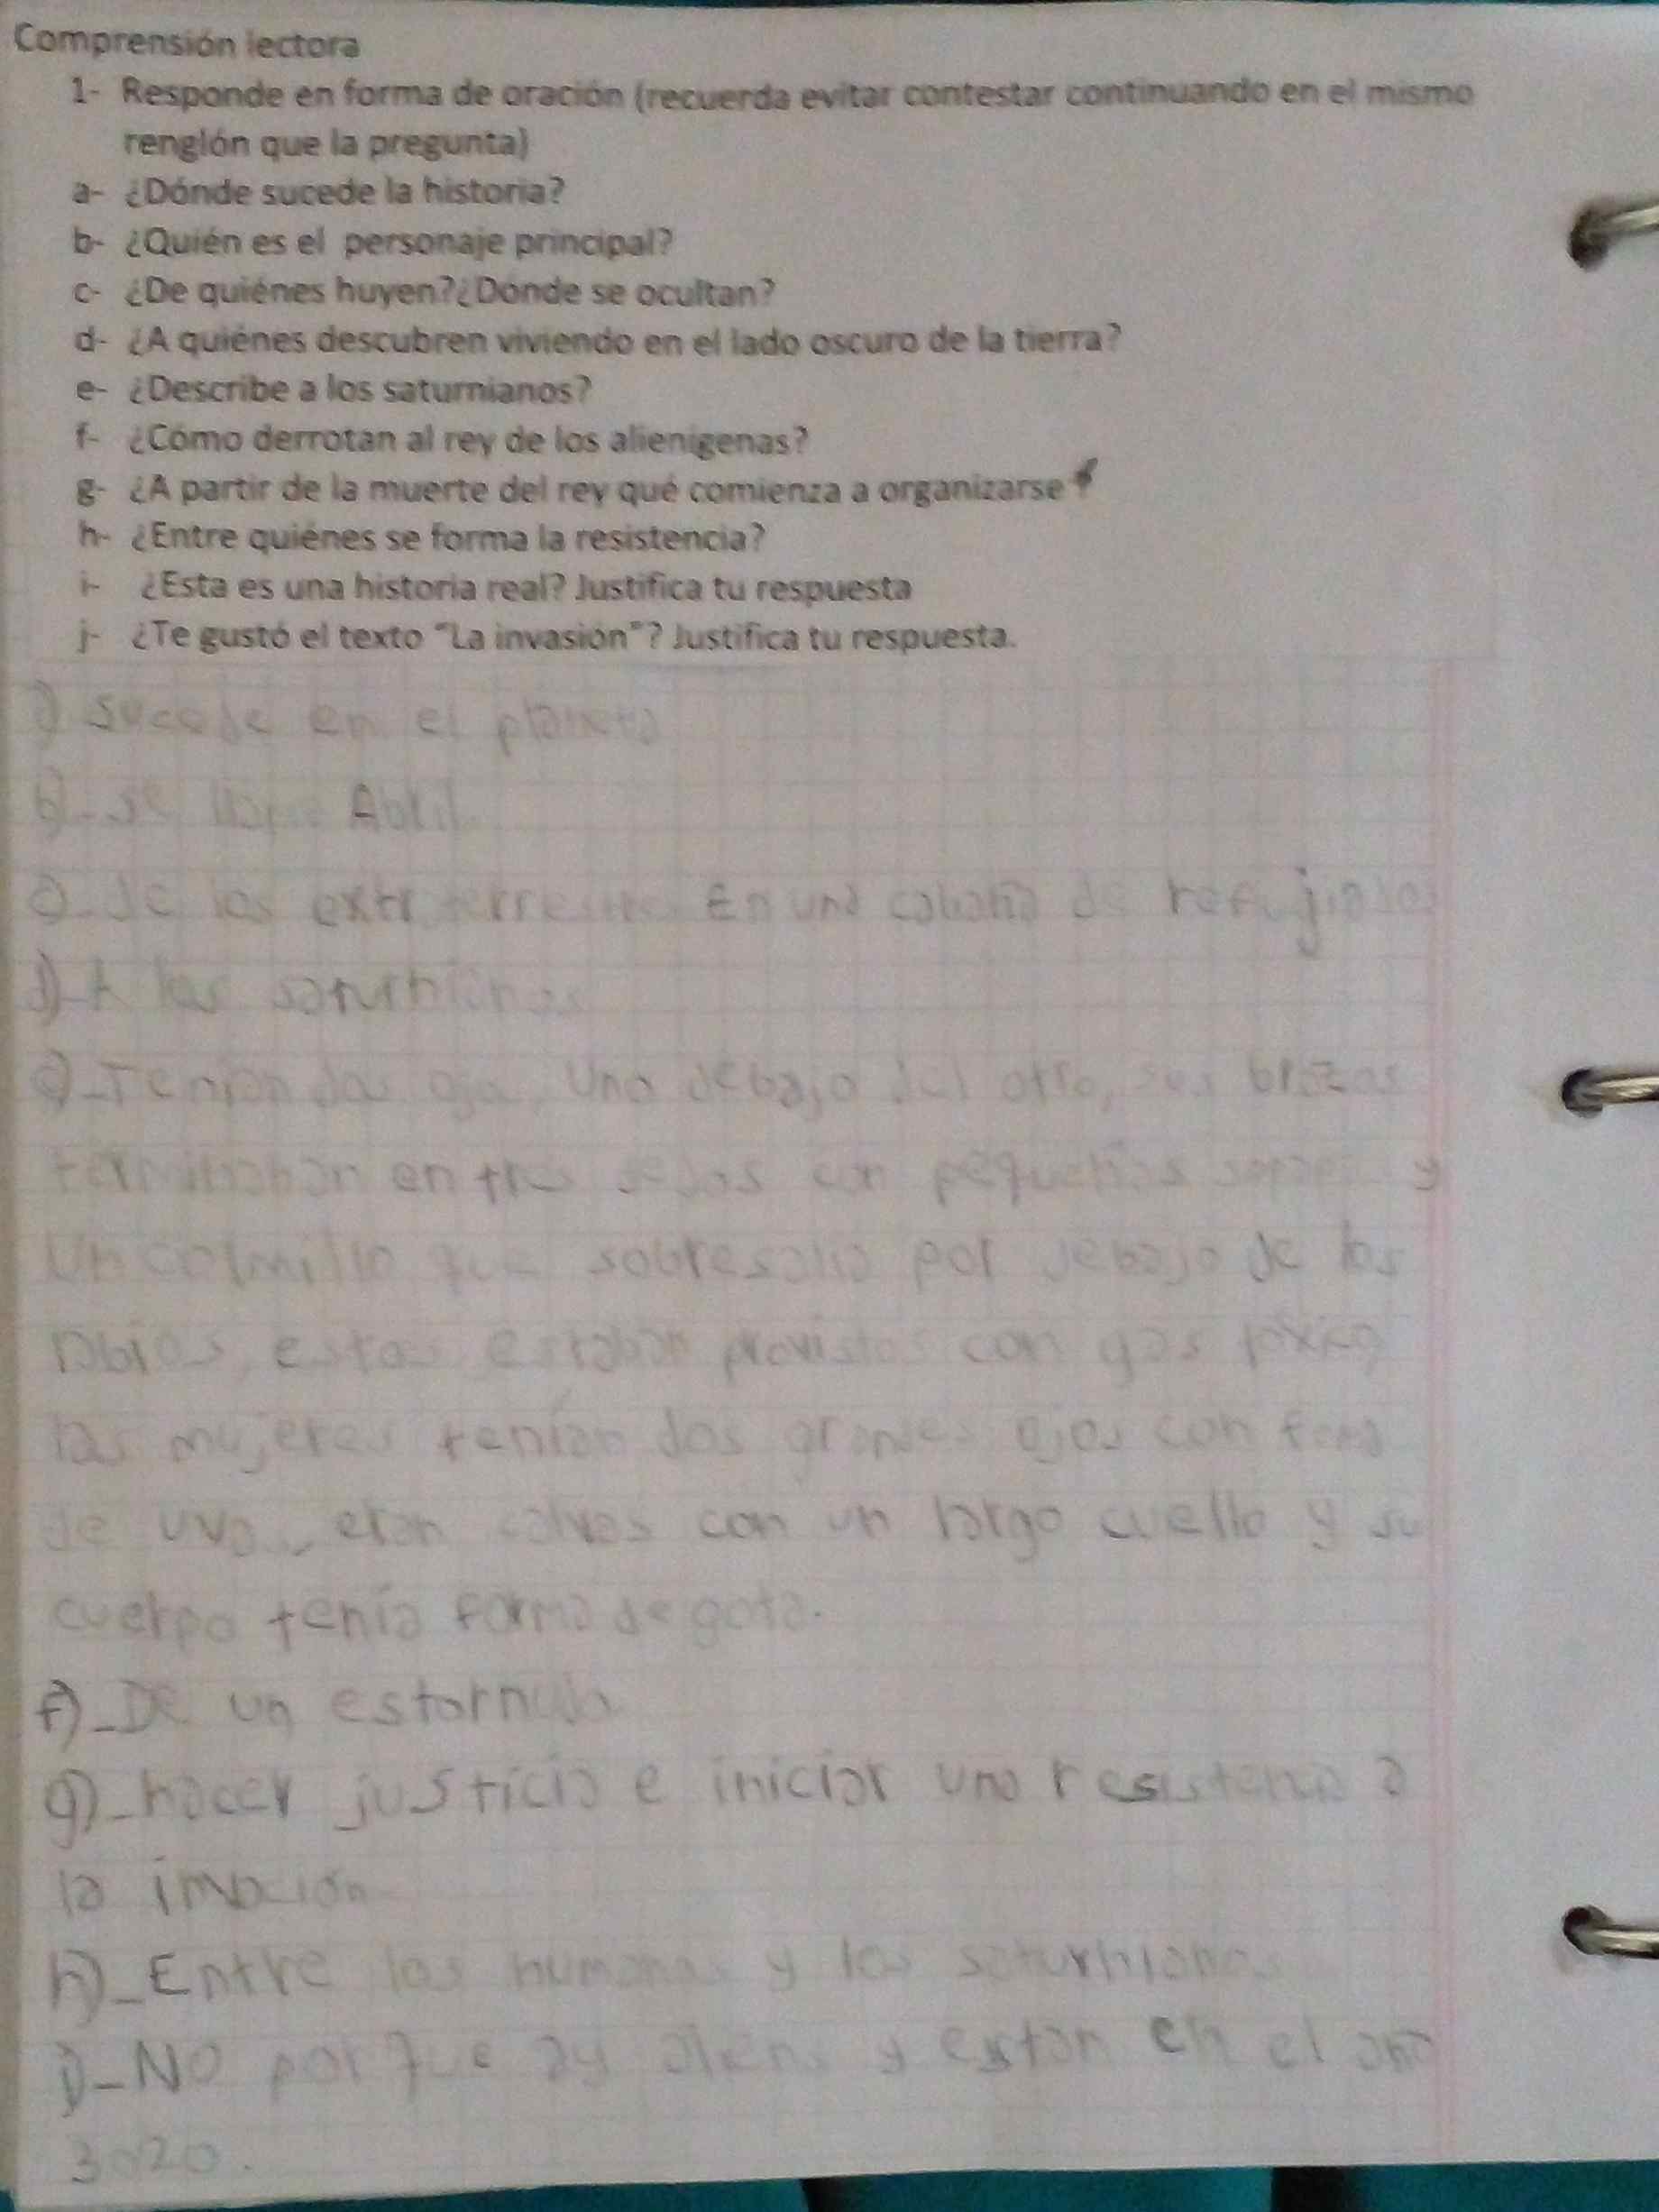 Comprensión lectora
1- Responde en forma de oración (recuerda evitar contestar continuando en el mismo
renglón que la pregunta)
a- ¿Dónde sucede la historia?
b- ¿Quién es el personaje principal?
c- ¿De quiénes huyen?¿Dónde se ocultan?
d- ¿A quiénes descubren viviendo en el lado oscuro de la tierra?
e- ¿Describe a los saturnianos?
f- ¿Cómo derrotan al rey de los alienígenas?
g- ¿A partir de la muerte del rey qué comienza a organizarse?
h- ¿Entre quiénes se forma la resistencia?
i- ¿Esta es una historia real? Justifica tu respuesta
j- ¿Te gustó el texto "La invasión"? Justifica tu respuesta.
a) sucede en el planeta
b)-se
c)-de los En una cabaña de refujiados
d)-A los saturnianos
e)-Tenian dos ojos, Uno debajo del otro, sus brazos
terminaban en tres dedos con pequeñas y
Un colmillo que sobresalia por debajo de los
labios, estos estaban provistos con gas toxico
las mujeres tenían dos grandes ojos con
de uva, eran calvos con un largo cuello y su
cuerpo tenía forma de gota.
f)-De un estornudo
g)-hacer justicia e iniciar una resistencia a
la
h)-Entre los humanos y los saturnianos
i)-No porque ay aliens y estan en el año
3020.